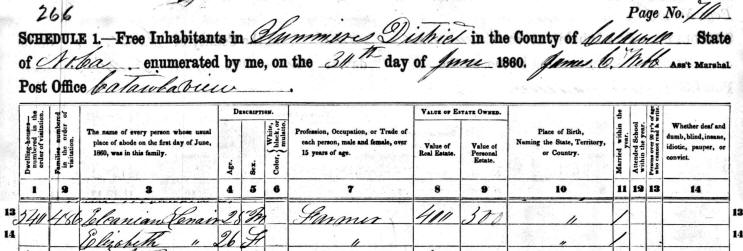 266
Page No. 70
SCHEDULE 1.—Free Inhabitants in District in the County of Caldwell State
of No. Ca enumerated by me, on the 30th day of June 1860. James C. Webb Ass't Marshal
Post Office Catawbaview.
Dwelling-houses—numbered in the order of visitation.
Families numbered in the order of visitation.
The name of every person whose usual place of abode on the first day of June, 1860, was in this family.
DESCRIPTION.
Age.
Sex.
Color, { White, black, or mulatto.
Profession, Occupation, or Trade of each person, male and female, over 15 years of age.
VALUE OF ESTATE OWNED.
Value of Real Estate.
Value of Personal Estate.
Place of Birth, Naming the State, Territory, or Country.
Married within the year.
Attended School within the year.
Persons over 20 y'rs of age who cannot read & write.
Whether deaf and dumb, blind, insane, idiotic, pauper, or convict.
1 2 3 4 5 6 7 8 9 10 11 12 13 14
13 540 486 Lenair 28 m Farmer 400 300 " / 13
14 Elizabeth " 26 f " " / 14